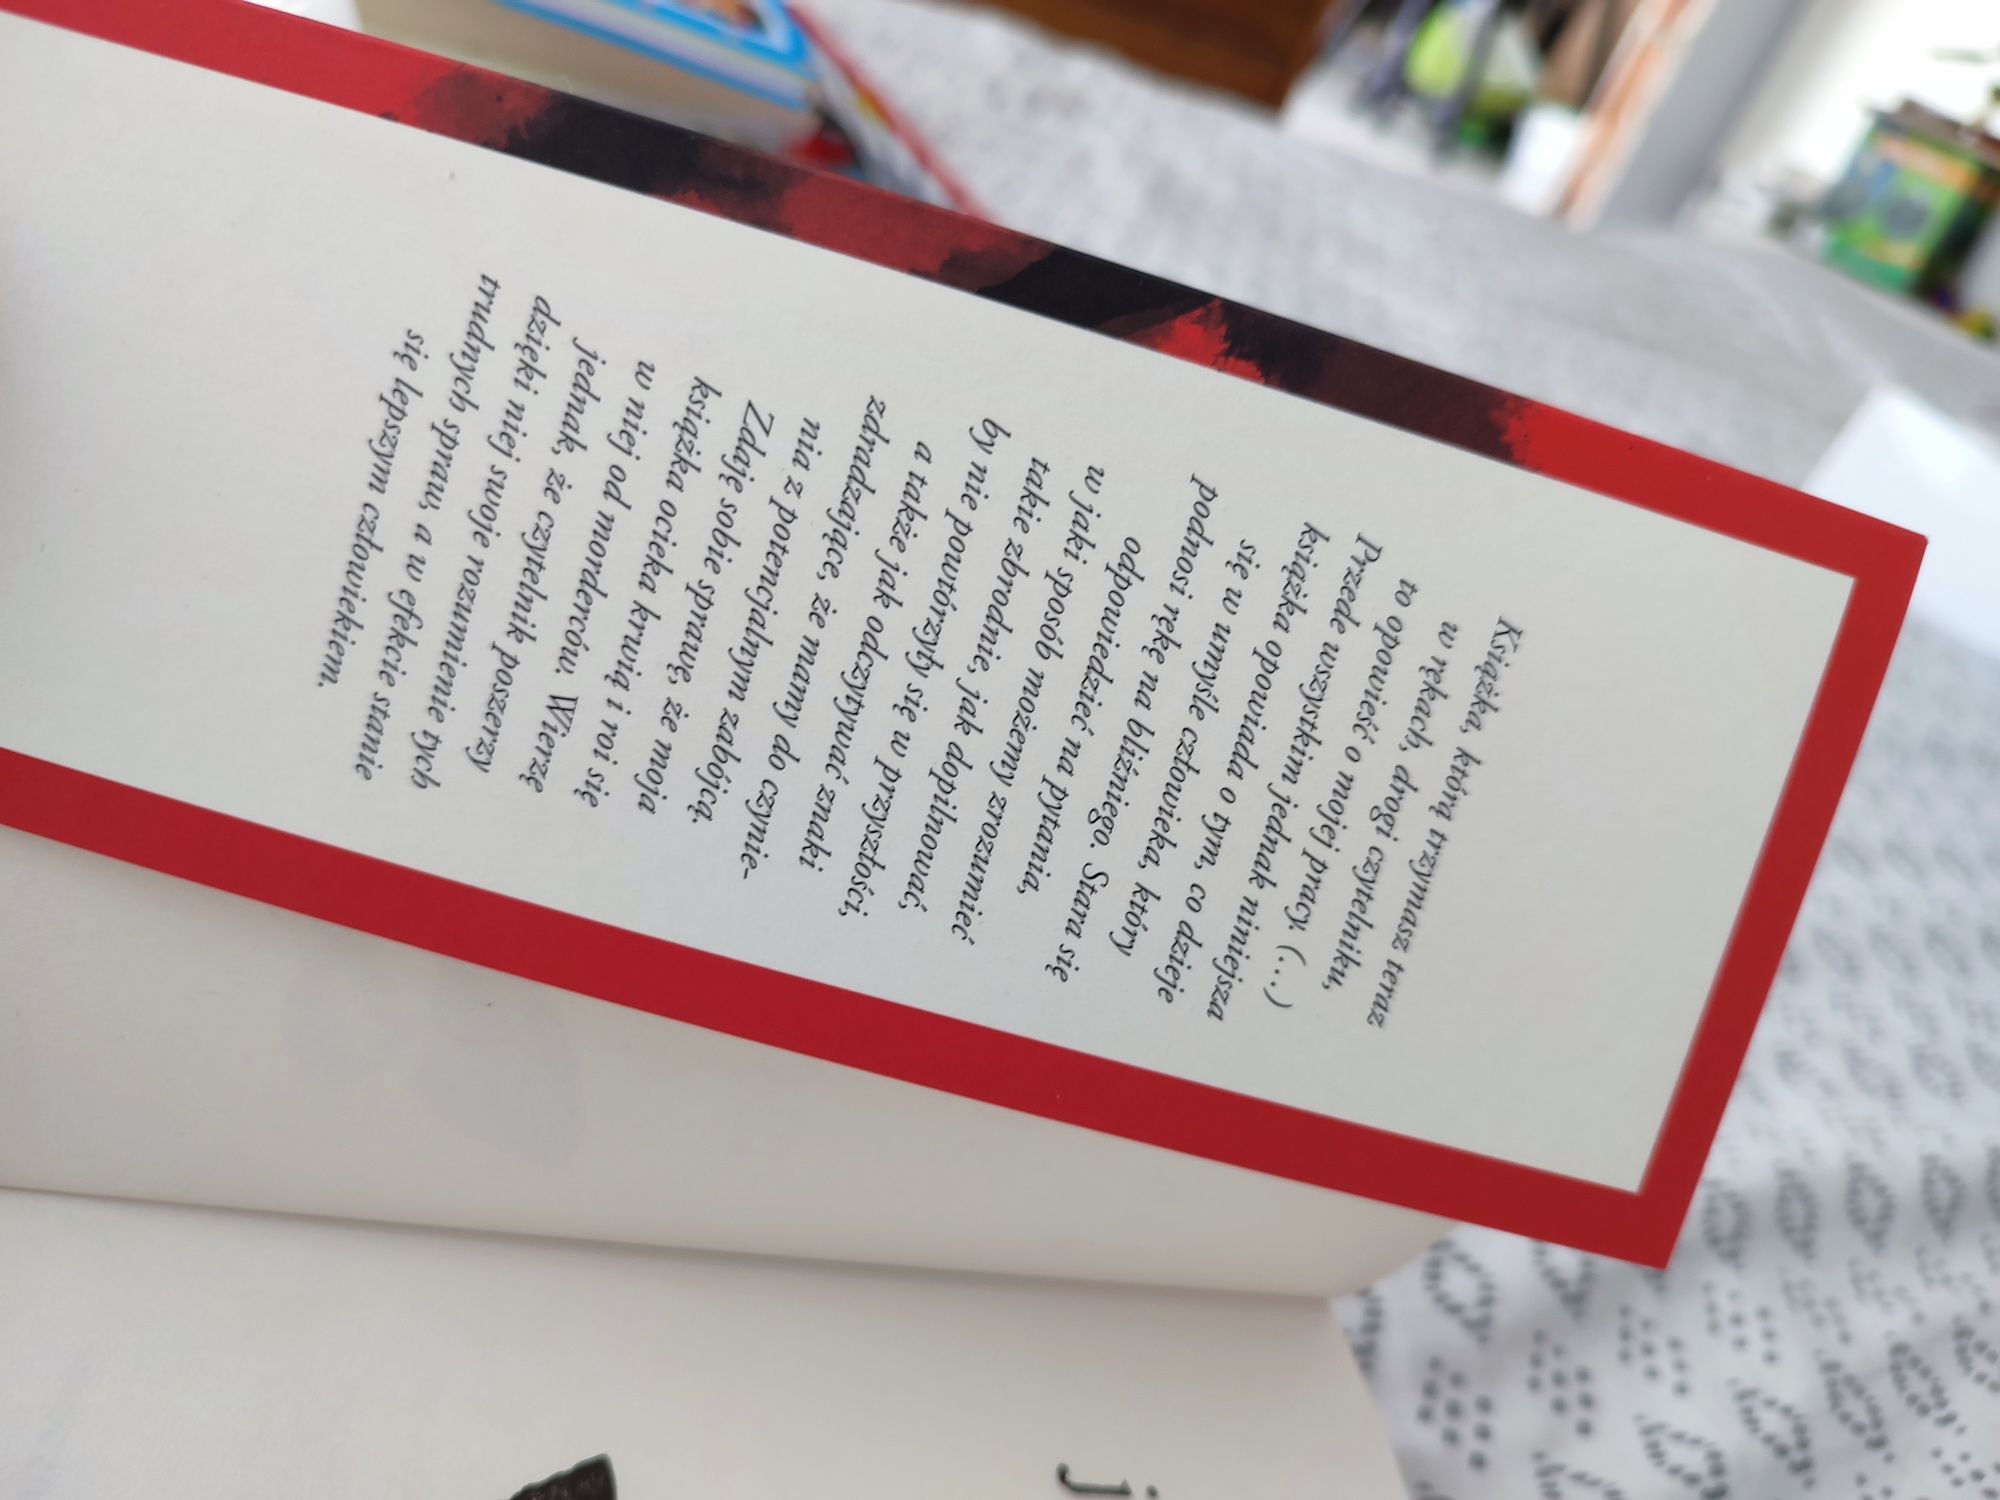 Książka, którą trzymasz teraz
w rękach, drogi czytelniku,
to opowieść o mojej pracy. (...)
Przede wszystkim jednak niniejsza
książka opowiada o tym, co dzieje
się w umyśle człowieka, który
podnosi rękę na bliźniego. Stara się
odpowiedzieć na pytania,
w jaki sposób możemy zrozumieć
takie zbrodnie, jak dopilnować,
by nie powtórzyły się w przyszłości,
a także jak odczytywać znaki
zdradzające, że mamy do czynie-
nia z potencjalnym zabójcą.
Zdaję sobie sprawę, że moja
książka ocieka krwią i roi się
w niej od morderców. Wierzę
jednak, że czytelnik poszerzy
dzięki niej swoje rozumienie tych
trudnych spraw, a w efekcie stanie
się lepszym człowiekiem.